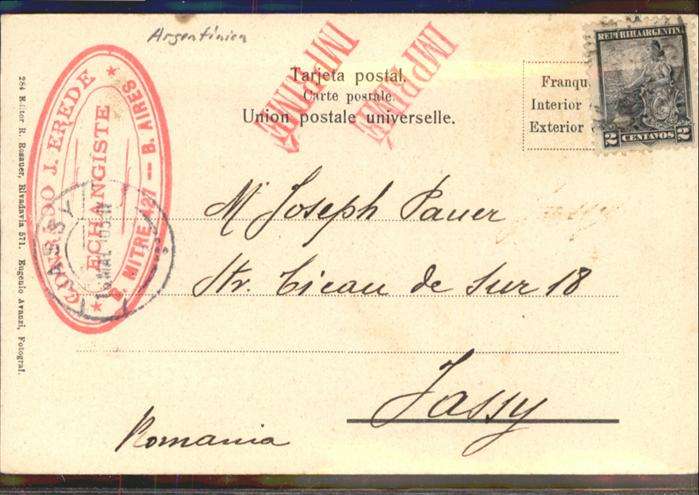 Argentinien
Tarjeta postal.
Carte postale.
Union postale universelle.
IMPRIMÉ
IMPRIMÉ
Franqu
Interior
Exterior
REPUBLICA ARGENTINA
2 CENTAVOS 2
J. EREDE
ECHANGISTE
B. MITRE 427 — B. AIRES
JASSY
284 Editor R. Rosauer, Rivadavia 571. Eugenio Avanzi, Fotograf.
Mr Joseph Pauer
Str. Cicau de Sur 18
Jassy
Romania